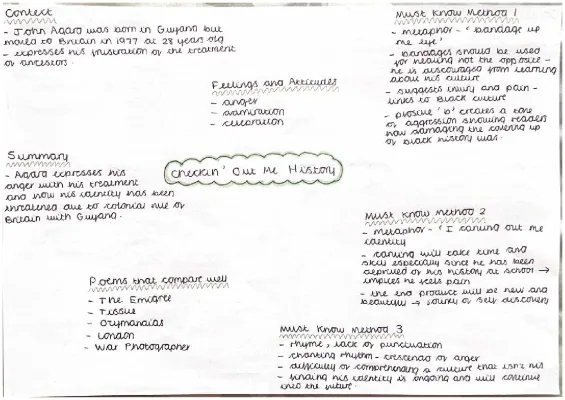 Context
- John Agard was born in Guyana but
moved to Britain in 1977 at 28 years old
- expresses his frustration of the treatment
of ancestors.
Must Know Method 1
- metaphor - 'bandage up
me eye'
- bandages should be used
for healing not the opposite -
he is discouraged from learning
about his culture
- suggests injury and pain -
links to Black culture
- plosive 'b' creates a tone
of aggression showing readers
how damaging the covering up
of black history was.
Feelings and Attitudes
- anger
- admiration
- celebration
Summary
- Agard expresses his
anger with his treatment
and how his identity has been
threatened due to colonial rule of
Britain with Guyana.
Checkin' Out Me History
Must know method 2
- metaphor - 'I carving out me
identity
- carving will take time and
skill especially since he has been
deprived of his history at school →
implies he feels pain
- the end product will be new and
beautiful → journey of self discovery
Poems that compare well
- The Emigree
- Tissue
- Ozymandias
- London
- War Photographer
Must Know Method 3
- rhyme, lack of punctuation
- chanting rhythm - crescendo of anger
- difficulty of comprehending a culture that isn't his
- finding his identity is ongoing and will continue
into the future.